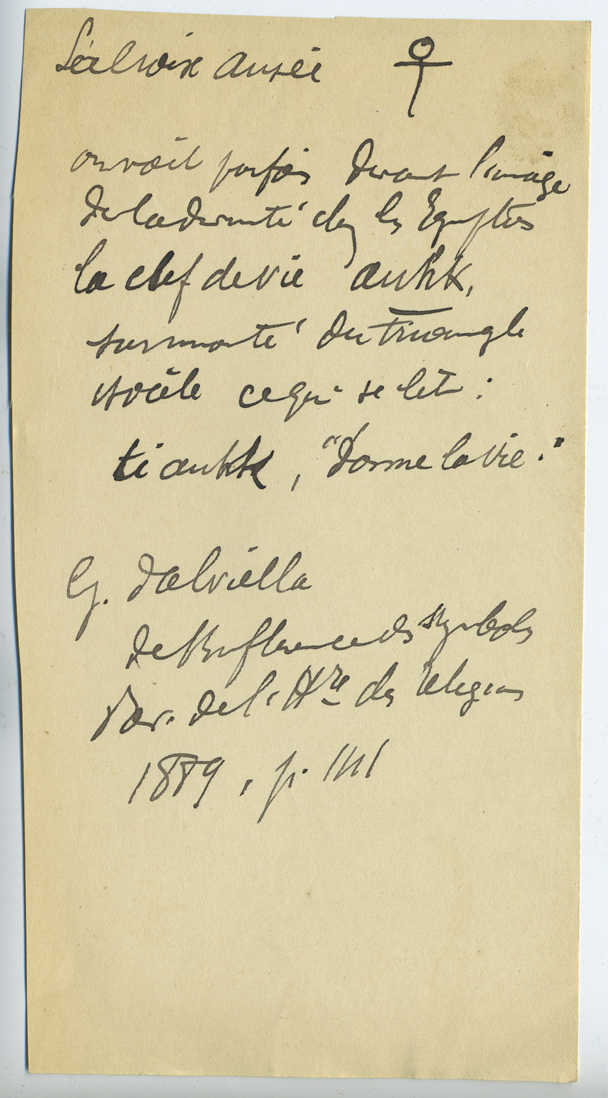 La croix ansée ☥
on voit parfois devant l'image
de la divinité chez les Egyptes
la clef de vie ankh,
surmonté du triangle
isocèle ce qui se lit :
ti ankh, "Donne la vie."
G. d'Alviella
de l'influence des symboles
Rev. de l'Hre des Religions
1889, p. 111